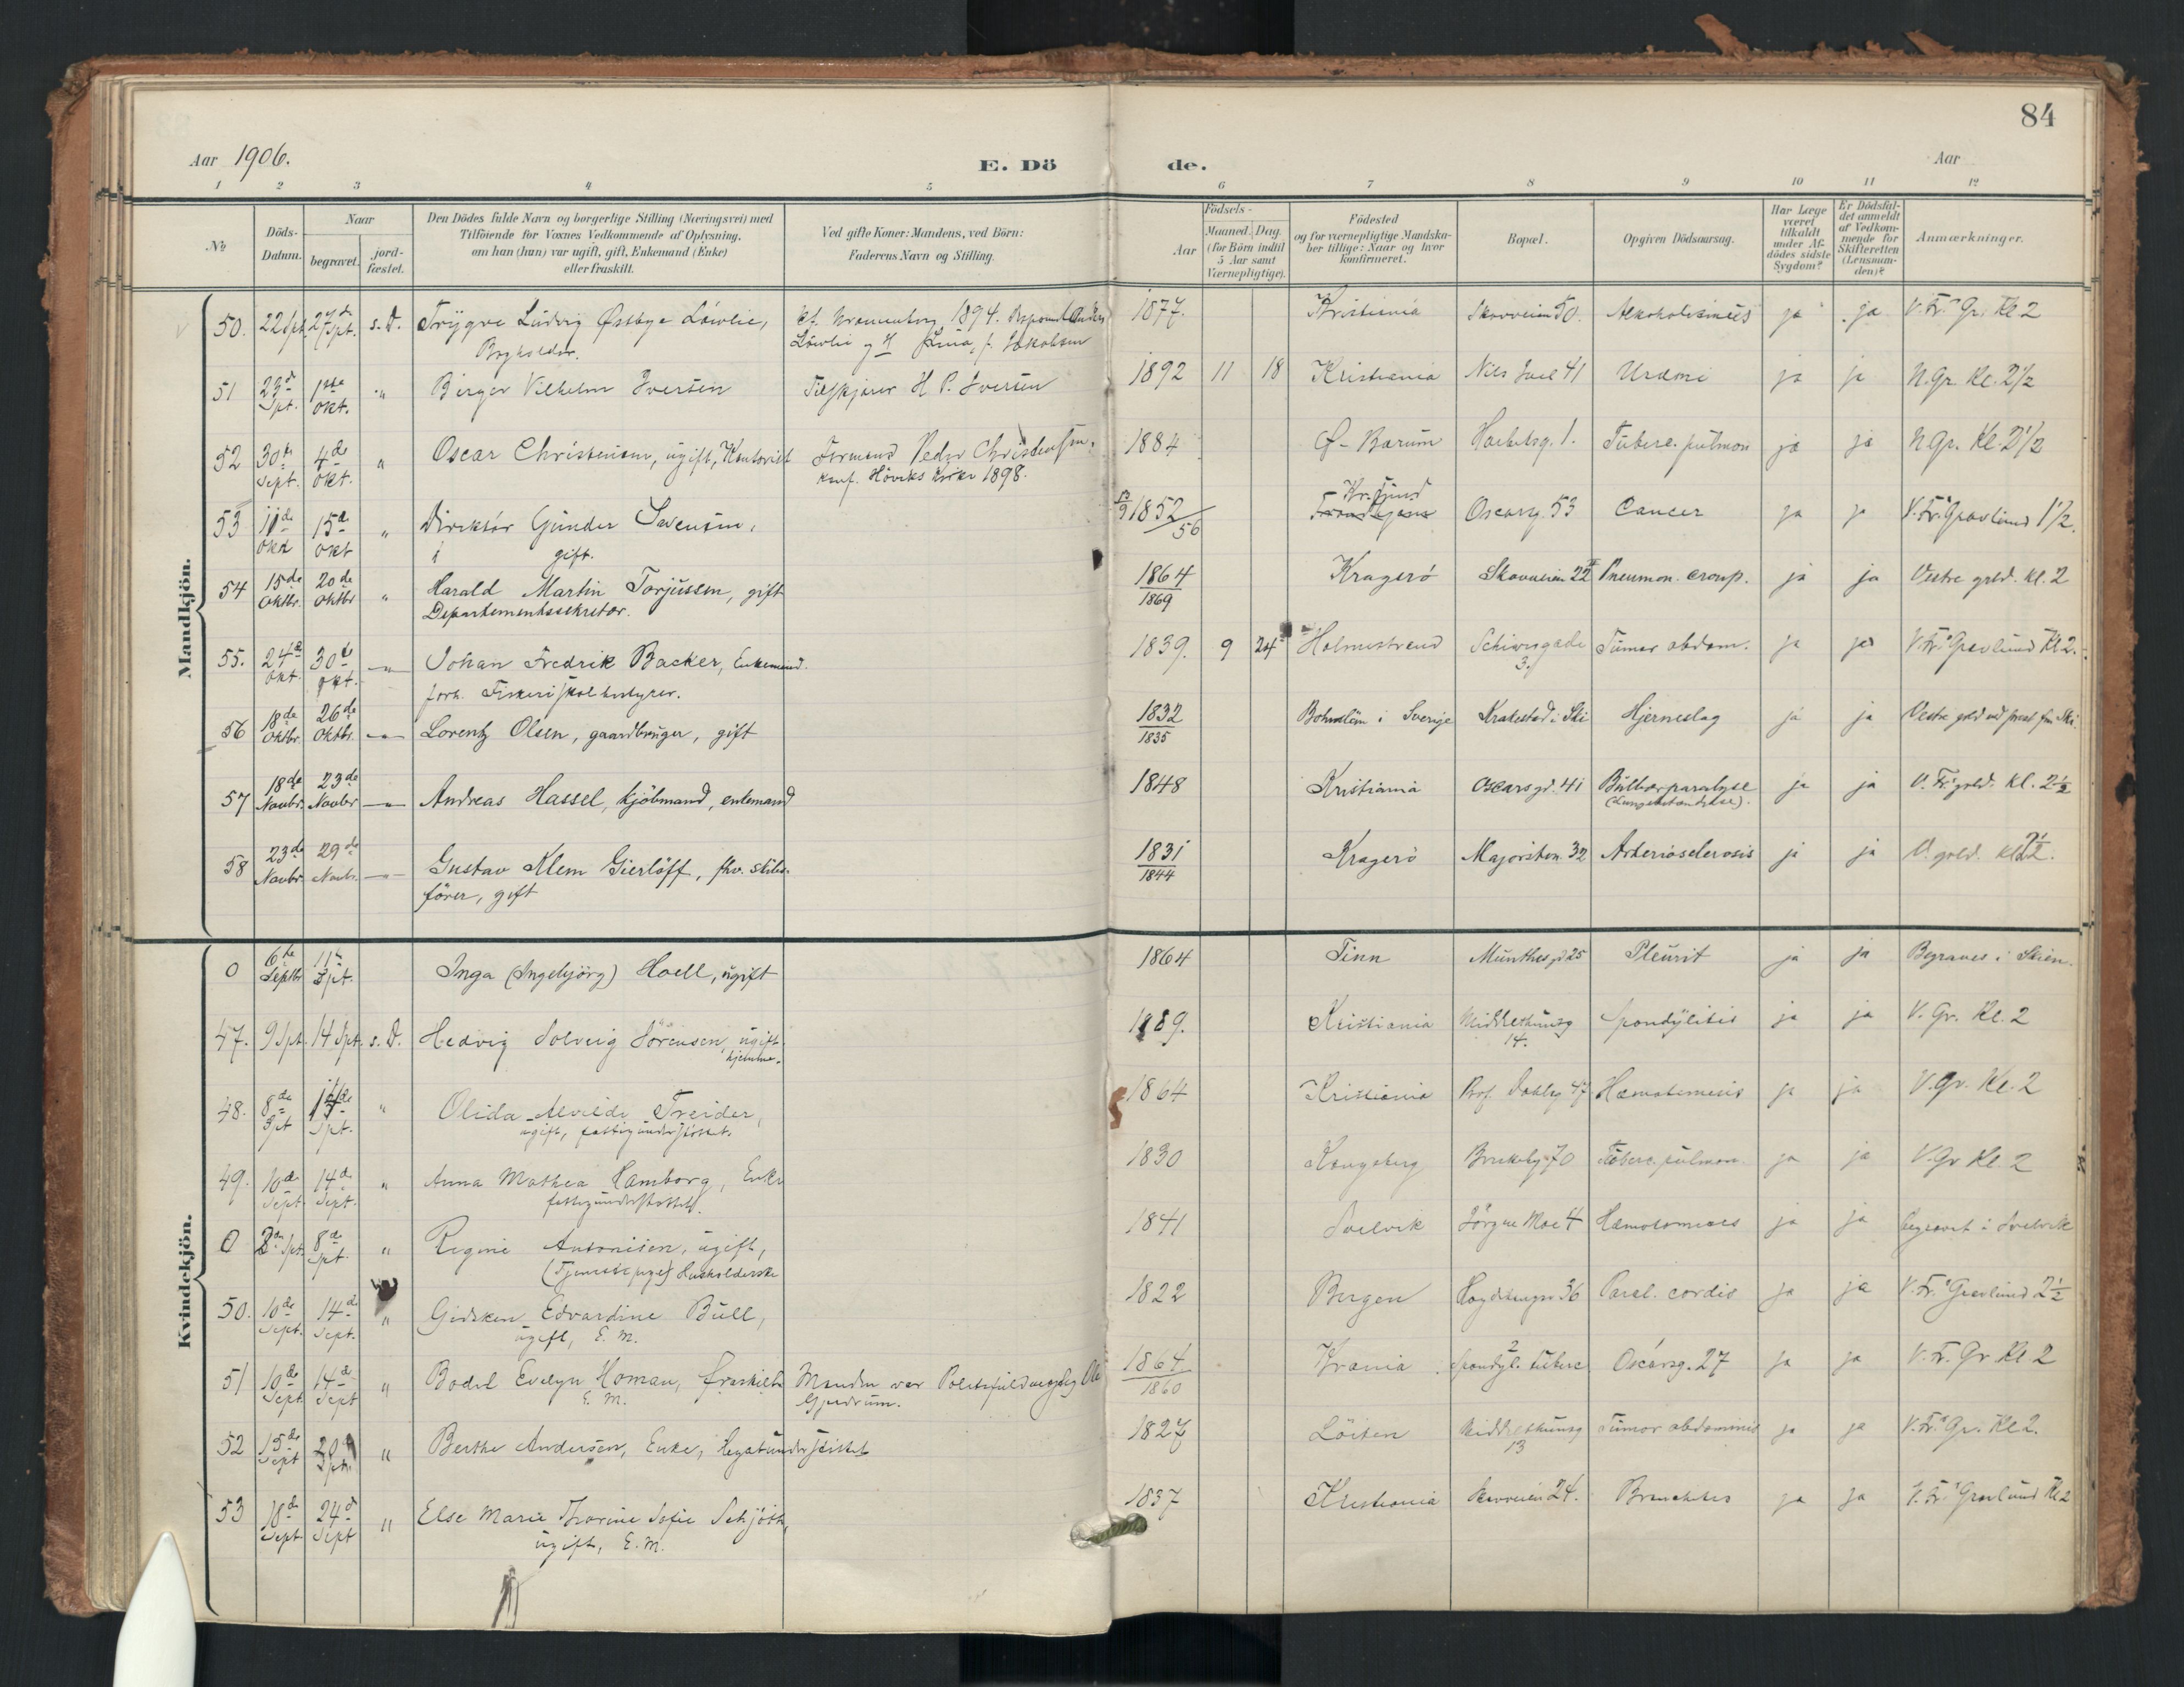 84
Aar 1906.
E. Dö de.
Aar
1 2 3 4 5 6 7 8 9 10 11 12
No
Döds-Datum.
Naar
begravet.
jord-fæstet.
Den Dödes fulde Navn og borgerlige Stilling (Næringsvei) med
Tilföiende for Voxnes Vedkommende af Oplysning.
om han (hun) var ugift, gift, Enkemand (Enke)
eller fraskilt.
Ved gifte Koner: Mandens, ved Börn:
Faderens Navn og Stilling.
Födsels-
Aar
Maaned. Dag.
(for Börn indtil
5 Aar samt
Værnepligtige).
Födested
og for værnepligtige Mandska-
ber tillige: Naar og hvor
konfirmeret.
Bopæl.
Opgiven Dödsaarsag.
Har Læge
været
tilkaldt
under Af-
dödes sidste
Sygdom?
Er Dödsfal-
det anmeldt
af Vedkom-
mende for
Skifteretten
(Lensman-
den)?
Anmærkninger.
Mandkjön.
50. 22 Spt. 27de Spt. s. D. Trygve Ludvig Østbye Löwlie, 1894. 1877. Kristiania Skovveien 50. Alkoholismus ja ja V. Fr. Gr. Kl 2
Bogholder. Löwlie
51 23d Spt. 1ste Okt. " Birger Vilhelm Iversen H. P. Iversen 1892 11 18 Kristiania Nils Juel 41 ja ja N. Gr. Kl. 2 1/2
52 30te Sept. 4de Okt. " Oscar Christensen, ugift, Kontorist Formand Peder Christensen. 1884 Ø-Bærum 1. Tuberc. pulmon ja ja N Gr. Kl 2 1/2
konf. Höviks Kirke 1898.
53 11de Okt 15d Okt " Direktör Gunder Svensen, 1852/56 Trondhjem Oscarsg. 53 Cancer ja ja V. Fr. Gravlund 1 1/2.
gift.
54 15de Oktbr. 20de Oktbr " Harald Martin Torjussen, gift 1864/1869 Kragerö Skovveien 22 Pneumon. croup. ja ja Vestre grld. kl. 2
Departementssekretær.
55. 24d Okt. 30te Okt. " Johan Fredrik Backer, Enkemand. 1839. 9 24 Holmestrand Schivesgade 3. Tumor abdom. ja ja V. Fr. Gravlund Kl 2.
forh. Fiskeriskolbestyrer.
56 18de Oktbr. 26de Oktbr. " Lorentz Olsen, gaardbruger, gift 1832/1835 Bohuslän i Sverige Krakestad i Ski Hjerneslag ja ja
57 18de Novbr. 23de Novbr " Andreas Hassel, kjöbmand, enkemand 1848 Kristiania Oscars gd. 41 Bulbærparalyse ja ja V. Fr. grld. kl. 2 1/2
(Lungebetændelse).
58 23de Novbr. 29de Novbr. " Gustav Klem Gierlöff, fhv. skibs- 1831/1844 Kragerö Majorstvn. 32 Arteriosclerosis ja ja V. grld. kl 2 1/2.
förer, gift
Kvindekjön.
0 6te Septbr 11te Spt. Inga (Ingebjörg) Hoell, ugift 1864 Tinn Munthes gd 25 Pleurit ja ja Begraves i Skien.
47. 9 Spt. 14 Spt. s. D. Hedvig Solveig Sörensen, ugift 1889. Kristiania Middelthunsg 14. Spondylitis ja ja V. Gr. Kl. 2
hjemme.
48. 8de Spt Spt. " Olida Alvilde Treider, 1864 Kristiania Prof. Dahlsg 47 Hæmatemesis ja ja V. Gr. Kl. 2
ugift, fattigunderstöttet.
49. 10de Sept. 14de Sept. " Anna Mathea Hamborg, Enke 1830 Kongsberg Briskebyv 70 Tuberc. pulmon. ja ja V. Gr Kl. 2
fattigunderstöttet.
0 Spt. 8de Spt. " Regine Antonisen, ugift, 1841 Svelvik Jörgen Moe 4 ja ja begravet i Svelvik
(Tjenestepige) Husholderske
50. 10de Sept. 14de Sept. " Gidsken Edvardine Bull, 1822 Bergen 36 Paral. cordis ja ja V. Fr. Gravlund 2 1/2
ugift, E. M.
51 10de Sept. 14de Sept " Bodil Evelyn Homan, fraskilt Manden var Politifuldmægtig Ole 1864/1860 Krania Spondyl. tuberc Oscarsg. 27 ja ja V. Fr. Gr Kl 2
E. M. Gjerdrum.
52 15de Sept Spt. " Berthe Andersen, Enke, Legatunderstöttet 1827 Löiten Middelthunsg 13 Tumor abdominis ja ja V. Fr. Gr. Kl 2.
53 18de Sept 24d Sept " Else Marie Thorine Sofie Schjöth, 1837 Kristiania Skovveien 24. ja ja V. Fr. Gravlund Kl 2
ugift, E. M.